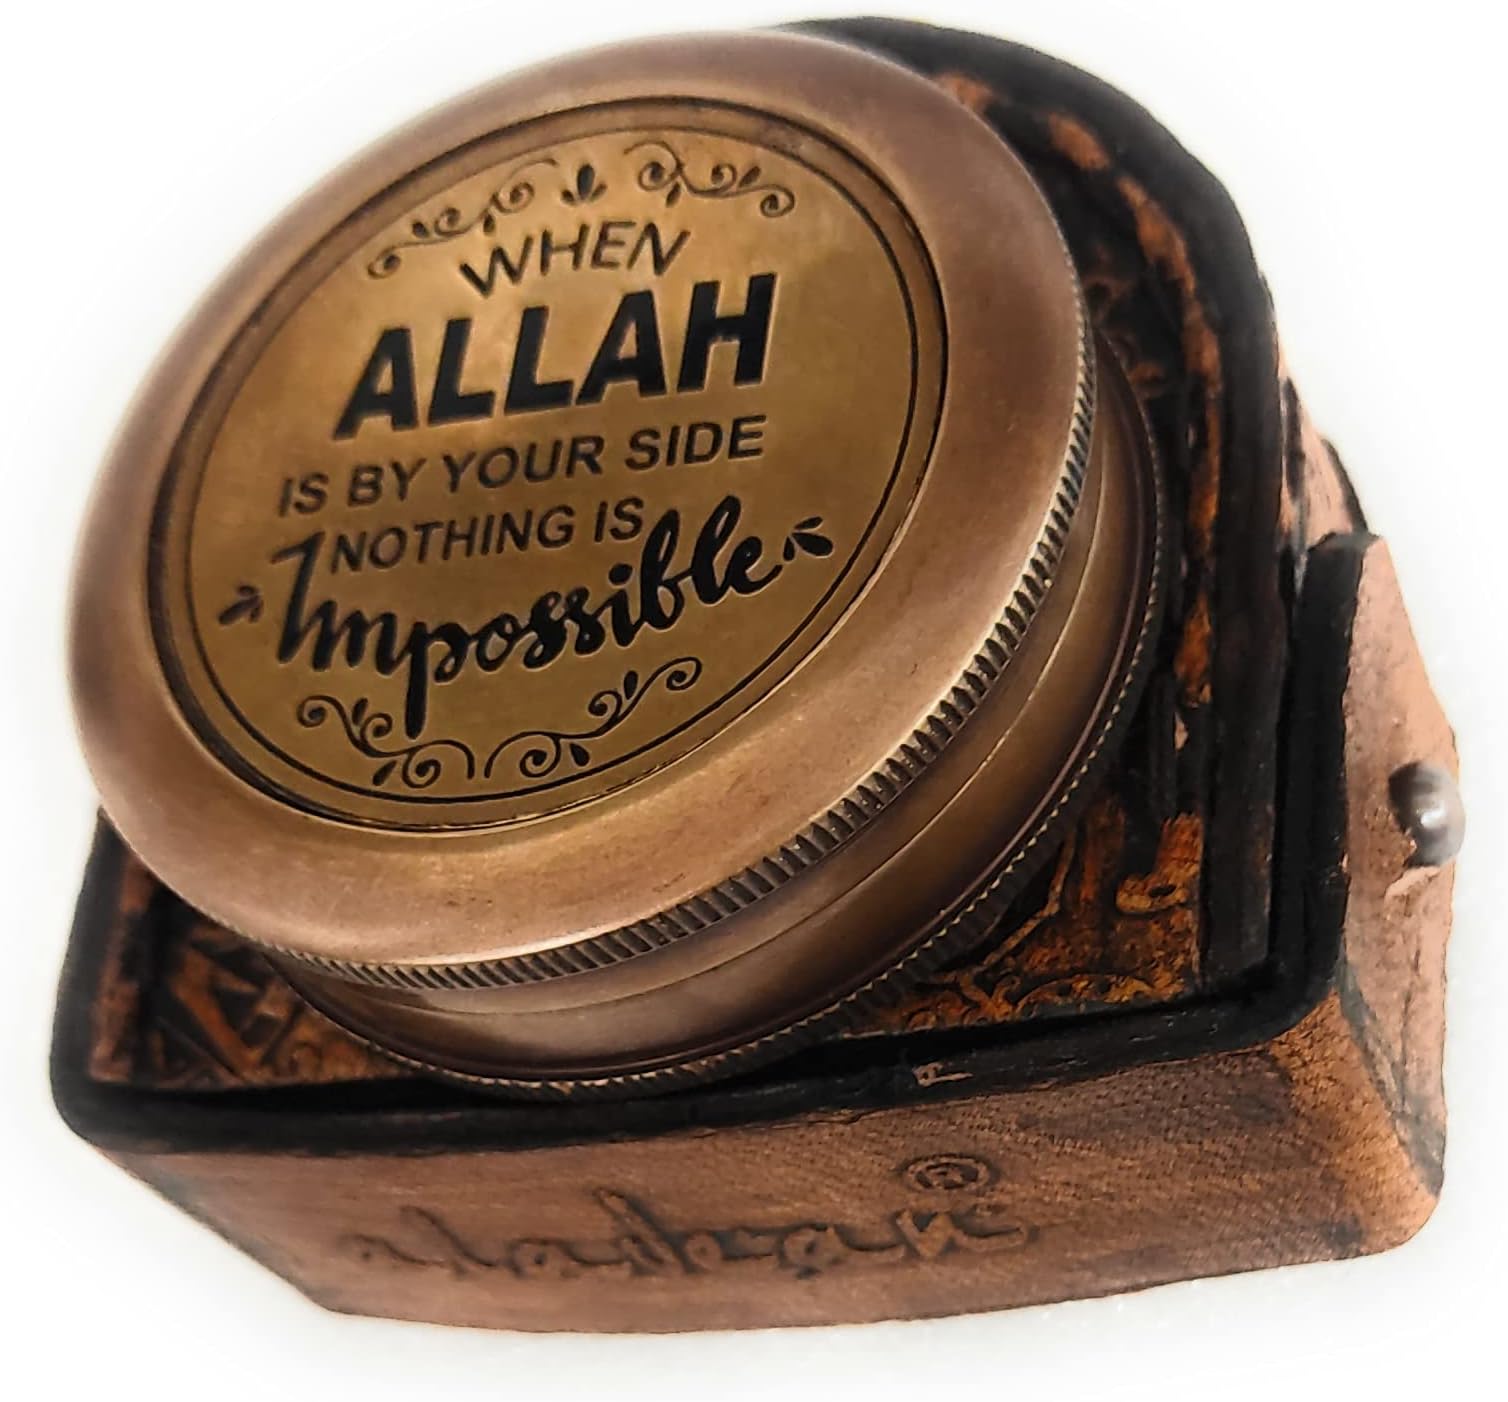 WHEN
ALLAH
IS BY YOUR SIDE
NOTHING IS
Impossible
®